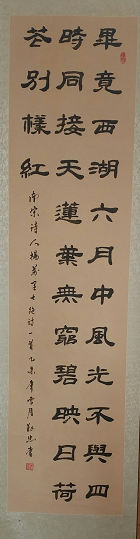 畢竟西湖六月中風光不與四
時同接天蓮葉無窮碧映日荷
花別樣紅
南宋詩人楊萬里七絕詩一首乙未年